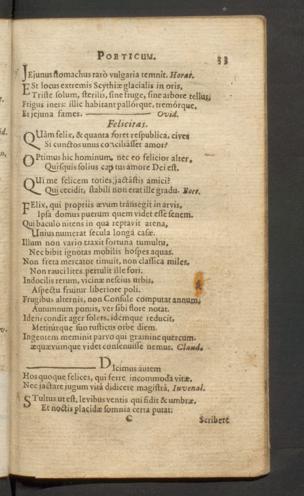 POETICUM. 33
JEjunus stomachus rarò vulgaria temnit. Horat.
ESt locus extremis Scythiæ glacialis in oris,
Triste solum, sterilis, sine fruge, sine arbore tellus,
Frigus iners: illic habitant pallórque, tremórque,
Et jejuna fames. Ovid.
Felicitas.
QUàm felix, & quanta foret respublica, cives
Si cunctos unus conciliasset amor?
OPtimus hic hominum, nec eo felicior alter,
Quisquis solius captus amore Dei est.
QUi me felicem toties jactastis amici?
Qui cecidit, stabili non erat ille gradu. Boet.
FElix, qui propriis ævum transegit in arvis,
Ipsa domus puerum quem videt esse senem.
Qui baculo nitens in qua reptavit arena,
Unius numerat secula longa casæ.
Illum non vario traxit fortuna tumultu,
Nec bibit ignotas mobilis hospes aquas.
Non freta mercator timuit, non classica miles,
Non rauci lites pertulit ille fori.
Indocilis rerum, vicinæ nescius urbis,
Aspectu fruitur liberiore poli.
Frugibus alternis, non Consule computat annum,
Autumnum pomis, ver sibi flore notat.
Idem condit ager soles, idemque reducit,
Metiturque suo rusticus orbe diem.
Ingentem meminit parvo qui gramine quercum,
æquævumque videt consenuisse nemus. Claud.
DIcimus autem
Hos quoque felices, qui ferre incommoda vitæ,
Nec jactare jugum vita didicere magistra, Juvenal.
STultus ut est, levibus ventis qui fidit & umbræ,
Et noctis placidæ somnia certa putat:
C Scribere